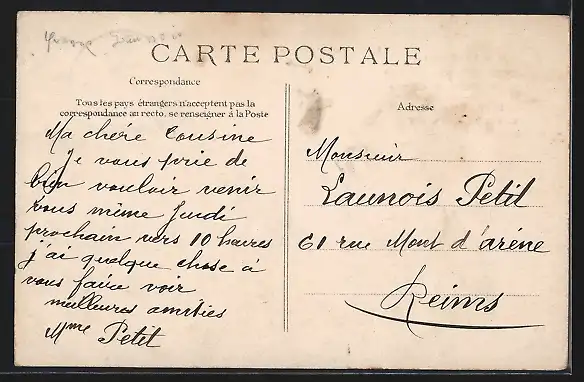 CARTE POSTALE
Correspondance
Tous les pays étrangers n'acceptent pas la
correspondance au recto, se renseigner à la Poste
Ma chére Cousine
Je vous prie de
bien vouloir venir
vous même Jeudi
prochain vers 10 heures
j'ai quelque chose à
vous faire voir
meilleures amitiés
Mme Petit
Adresse
Monsieur
Launois Petit
61 rue Mont d'aréne
Reims